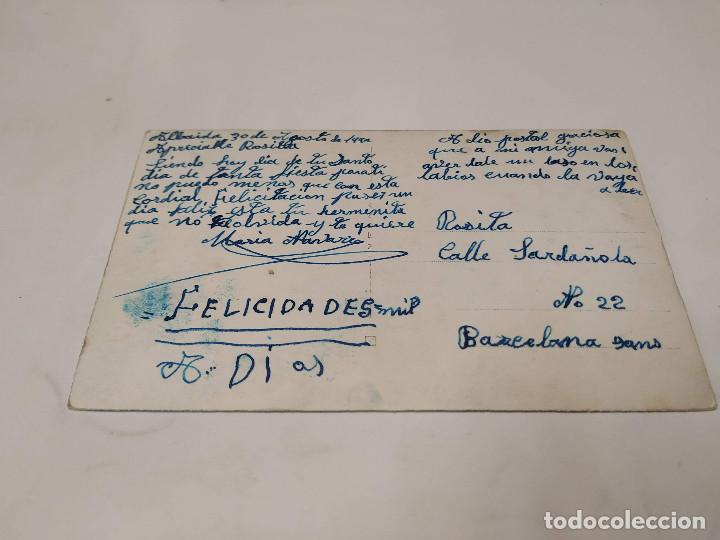 Albaida 30 de Agosto de
Apreciable Rosita
Siendo hoy dia de tu Santo
dia de tanta fiesta para ti
no puedo menos que con esta
cordial felicitacion pases un
dia feliz esta tu hermenita
que no te olvida y te quiere
Maria Navarro
FELICIDADES mil
A. Di as
A dio postal graciosa
que a mi amiga vas
aver dale un beso en los
labios cuando la vaya
a leer
Rosita
Calle Sardañola
No 22
Barcelona sans
todocoleccion
todocoleccion.net